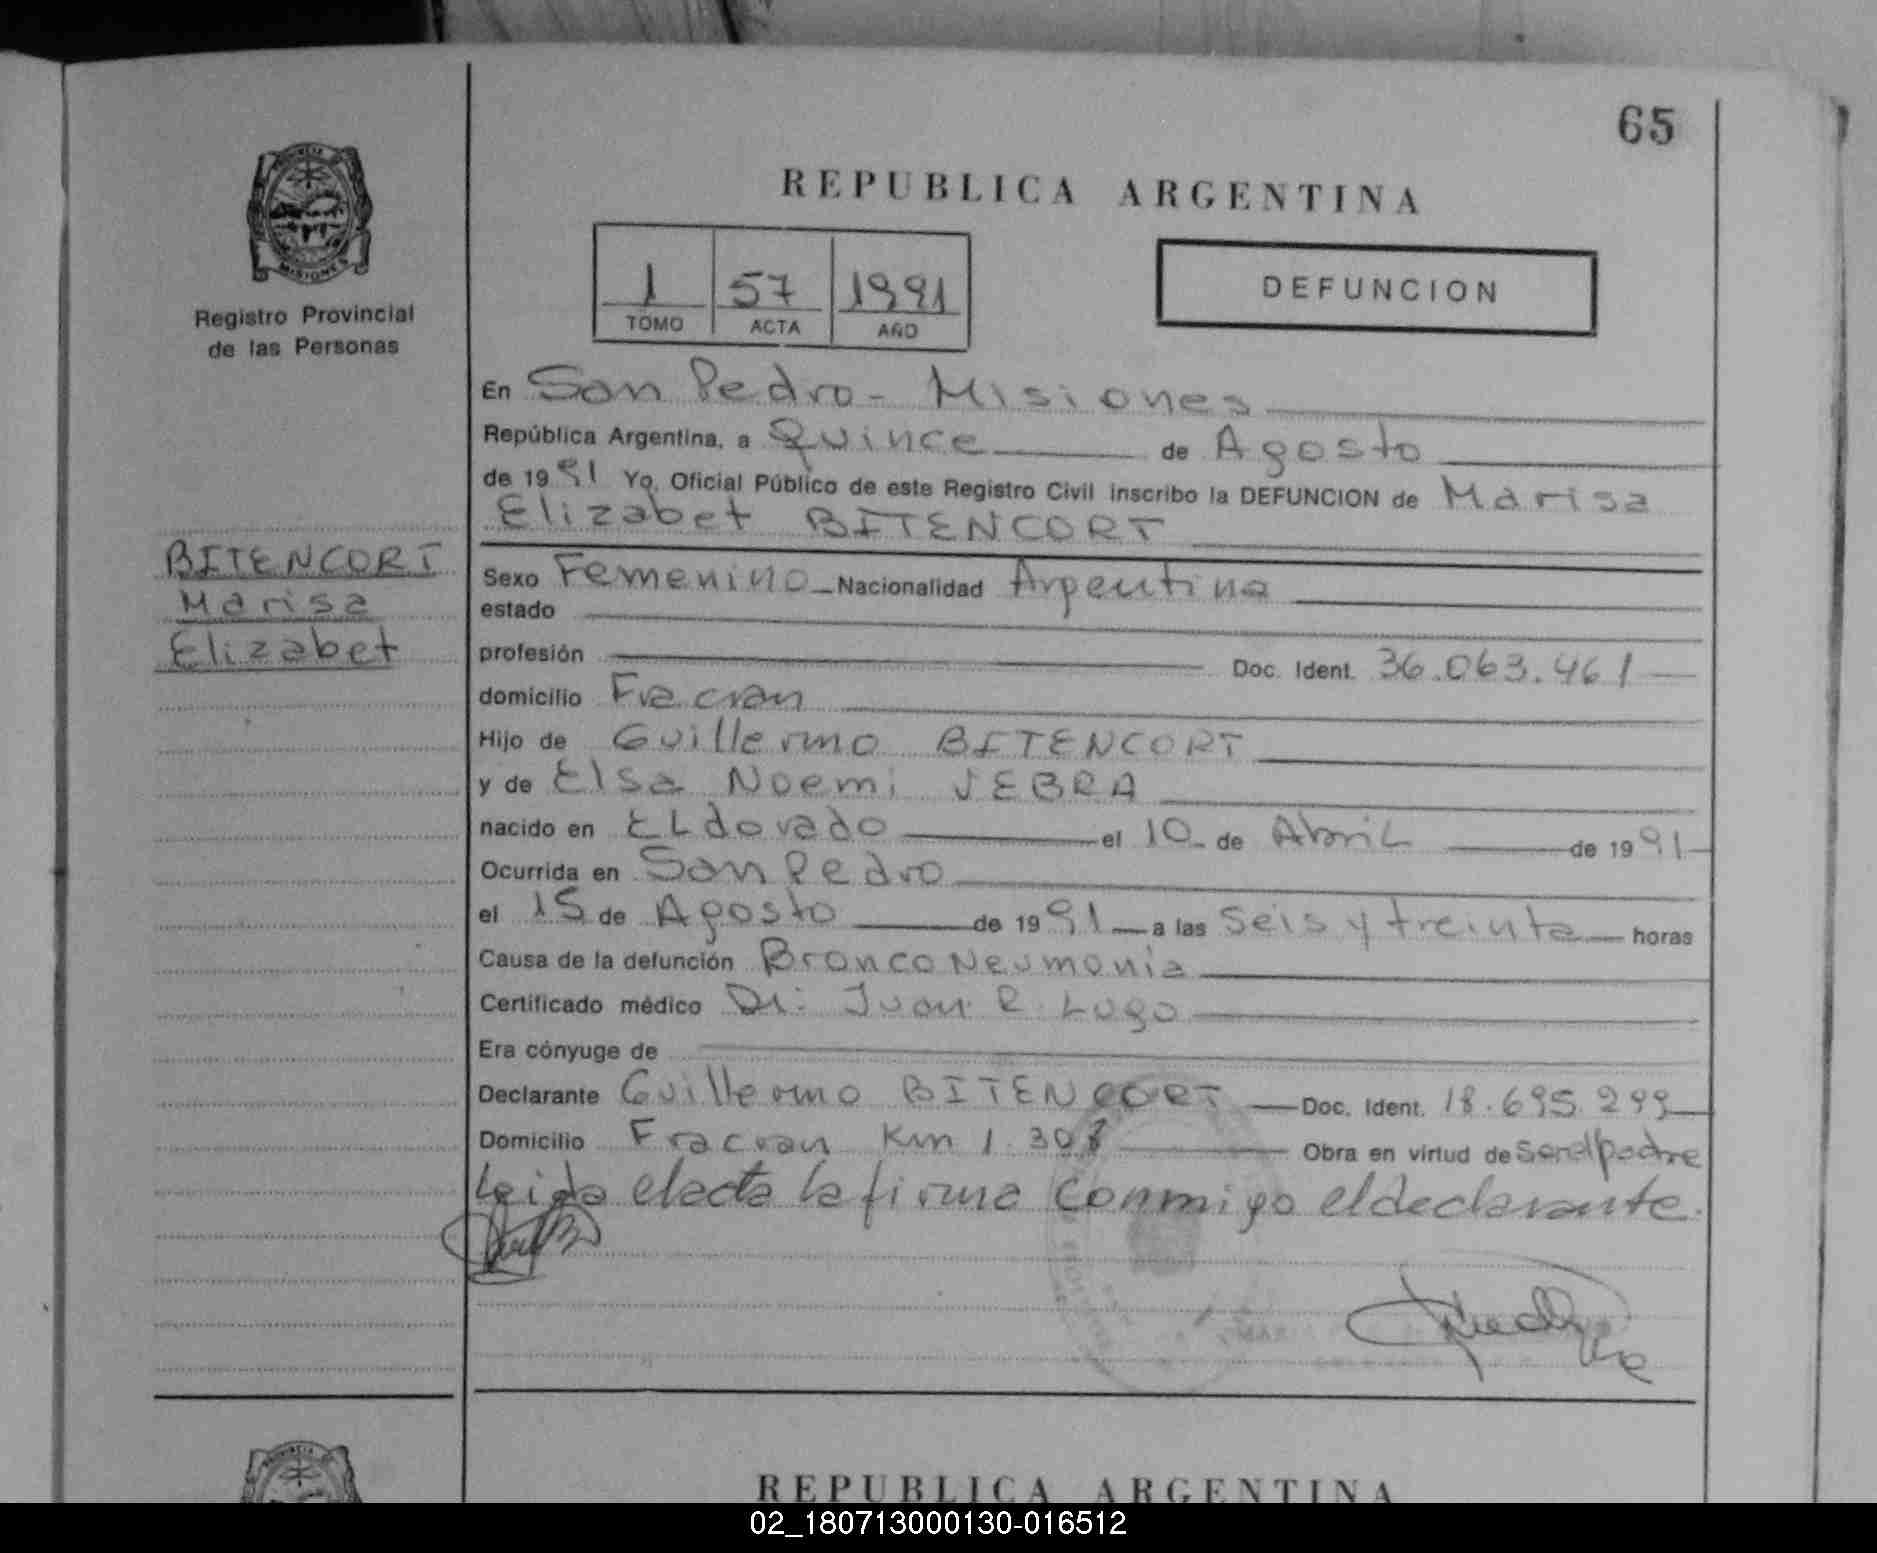 65
REPUBLICA ARGENTINA
PROVINCIA DE
MISIONES
Registro Provincial
de las Personas
1 57 1991
TOMO ACTA AÑO
DEFUNCION
En San Pedro - Misiones
República Argentina, a Quince de Agosto
de 1991 Yo, Oficial Público de este Registro Civil inscribo la DEFUNCION de Marisa
Elizabet BITENCORT
BITENCORT
Marisa
Elizabet
Sexo Femenino - Nacionalidad Argentina
estado
profesión Doc. Ident. 36.063.461
domicilio Fracran
Hijo de Guillermo BITENCORT
y de Elsa Noemi JEBRA
nacido en ELdorado el 10 - de AbriL de 1991
Ocurrida en San Pedro
el 15 de Agosto de 1991 a las Seis y treinta horas
Causa de la defunción BroncoNeumonia
Certificado médico Dr: Juan R. Lugo
Era cónyuge de
Declarante Guillermo BITENCORT Doc. Ident. 18.695.299
Domicilio Fracran Km 1.30 Obra en virtud de Ser el padre
Leida el acta la firma conmigo el declarante.
REPUBLICA ARGENTINA
02_180713000130-016512